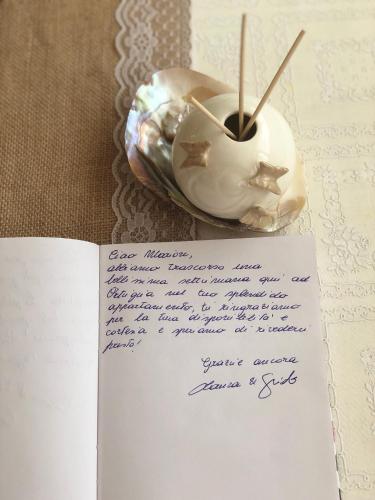 Ciao Marion,
abbiamo trascorso una
bellissima settimana qui ad
Ortigia nel tuo splendido
appartamento, ti ringraziamo
per la tua disponibilità e
cortesia e speriamo di rivederci
presto!
Grazie ancora
Laura & Guido